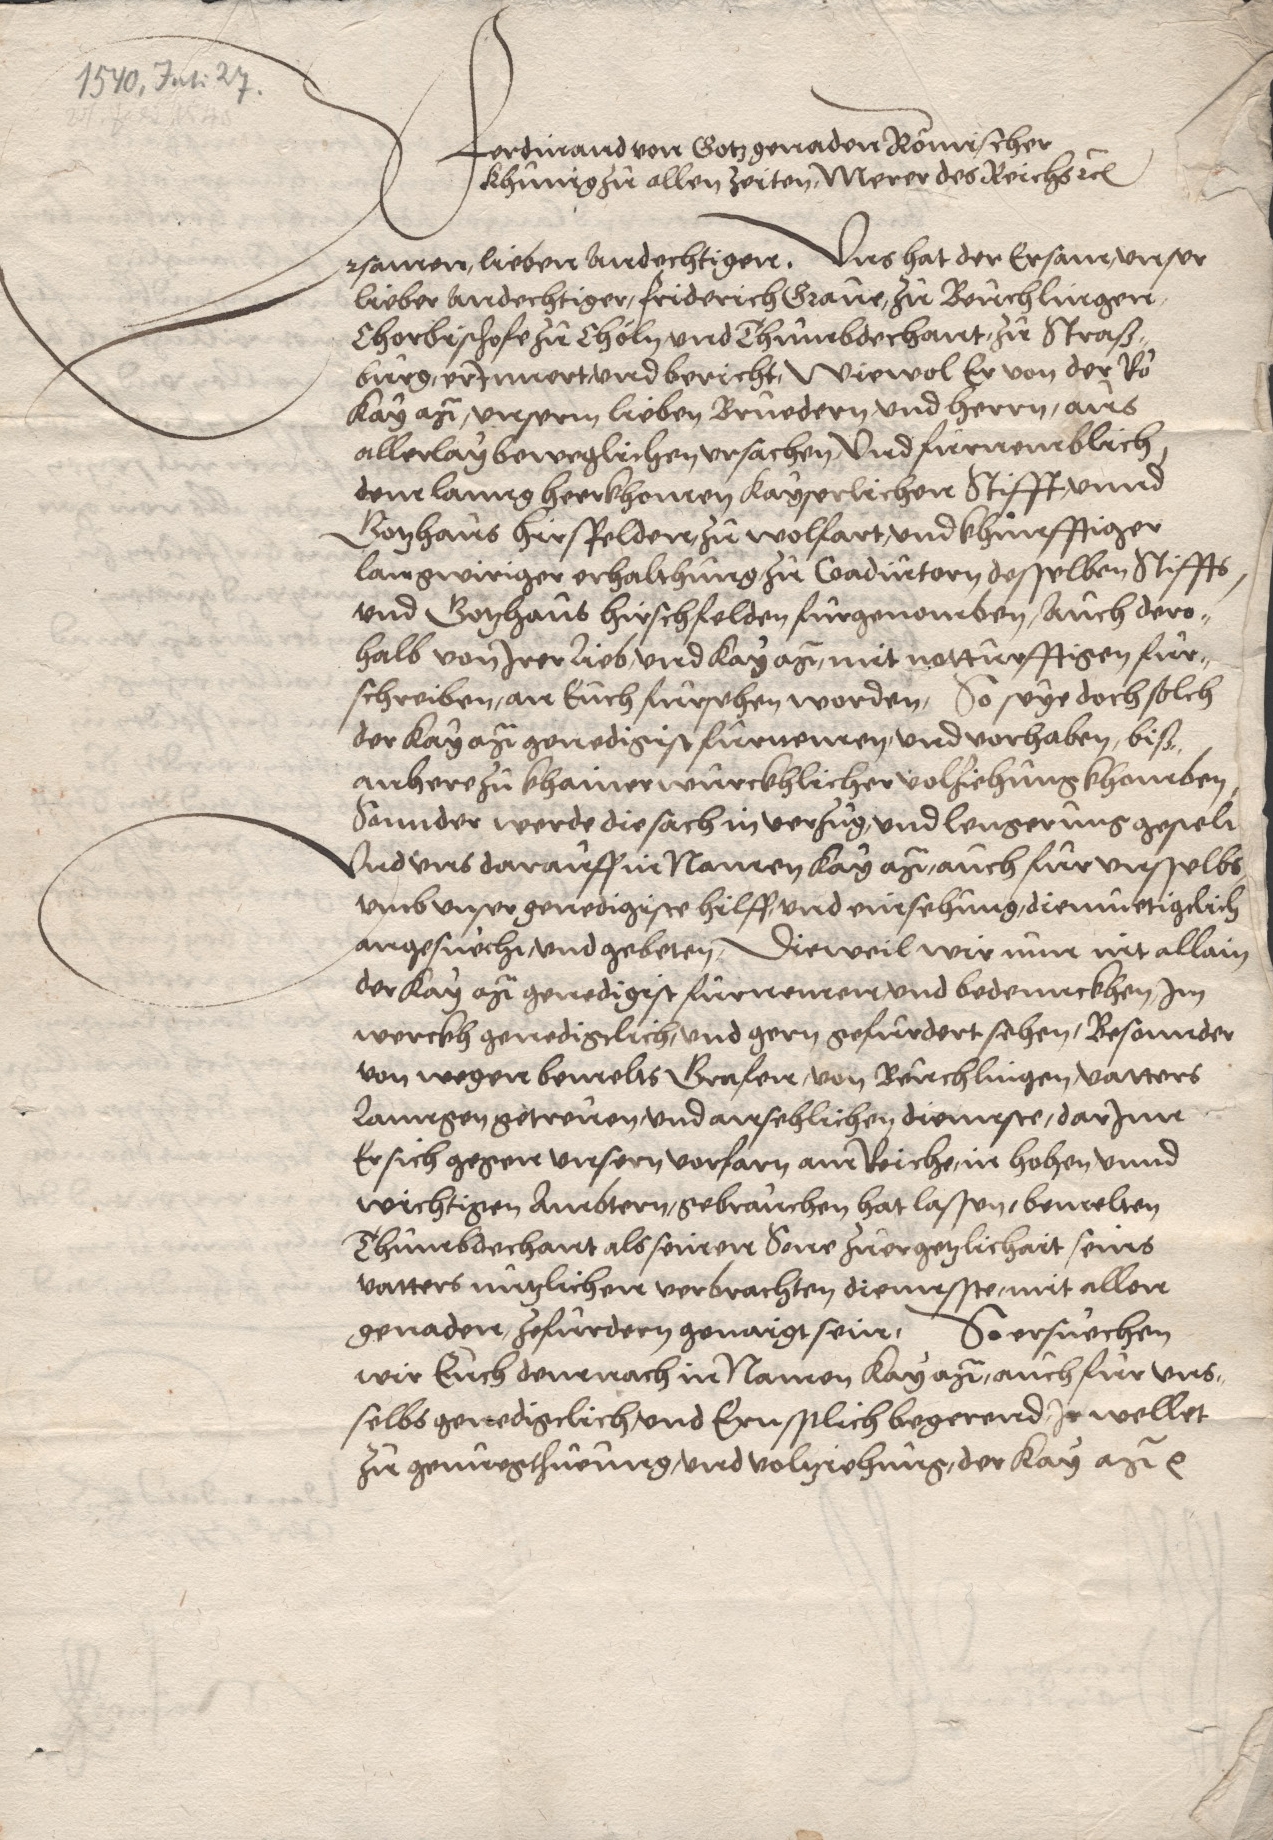 1540, Juli 27.
Ferdinand von Gotz genaden Römischer
Khünig zu allen Zeiten, Merer des Reichs ꝛc
Ersamen, lieben Andechtigen. Vns hat der Ersam, vnser
lieber Andechtiger, Friderich Graue, zu Beuchlingen,
Chorbischofe zu Cöln vnd Thumbdechant, zu Straß-
burg, erInnert, vnd bericht, Wiewol Er von der Rö
Kay Mt, vnserm lieben Bruedern vnd herrn, aus
allerlay beweglichen vrsachen, Vnd furnemblich,
dem lanng heerkhomen Kayserlichen Stifft, vnnd
Gotzhaus hirsfelden, zu wolfart, vnd khunfftiger
langwiriger erhalthung, zu Coadiutorn desselben Stiffts,
vnd Gotzhaus hirschfelden furgenomben, Auch dero-
halb von Irer Lieb, vnd Kay Mt, mit notturfftigen fur-
schreiben, an Euch fursehen worden, So seye doch solch
der Kay Mt genedigist furnemen, vnd vorhaben, biß-
anhere zu khainer wurckhlicher volziehung khomben,
Sonnder werde die sach in verzug, vnd lengerung gestelt,
Vnd vns darauff in Namen Kay Mt, auch fur vns selbs,
vmb vnser genedigiste hilff, vnd einsehung, diemuetigclich
angesuecht, vnd gebeten, Dieweil wir nun nit allain
der Kay Mt genedigist furnemen vnd bedennckhen, Im
werckh genedigclich, vnd gern gefurdert sehen, Besonnder
von wegen bemelts Grafen, von Beuchlingen, vatters
Lanngen getreuen, vnd ansehlichen diennste, darInn
Er sich gegen vnsern vorfarn am Reiche, in hohen vnnd
wichtigen Ambtern, gebrauchen hat lassen, bemelten
Thumbdechant als seinen Sone zu ergetzlichait seins
vatters nutzlichen verbrachten diennsste, mit allen
genaden, zefurdern genaigt sein, So ersuechen
wir Euch demnach in Namen Kay Mt, auch fur vns-
selbs genedigclich, vnd Ernsstlich begerend, Ir wellet
zu genuegthueung, vnd volziehung, der Kay Mt ꝛ